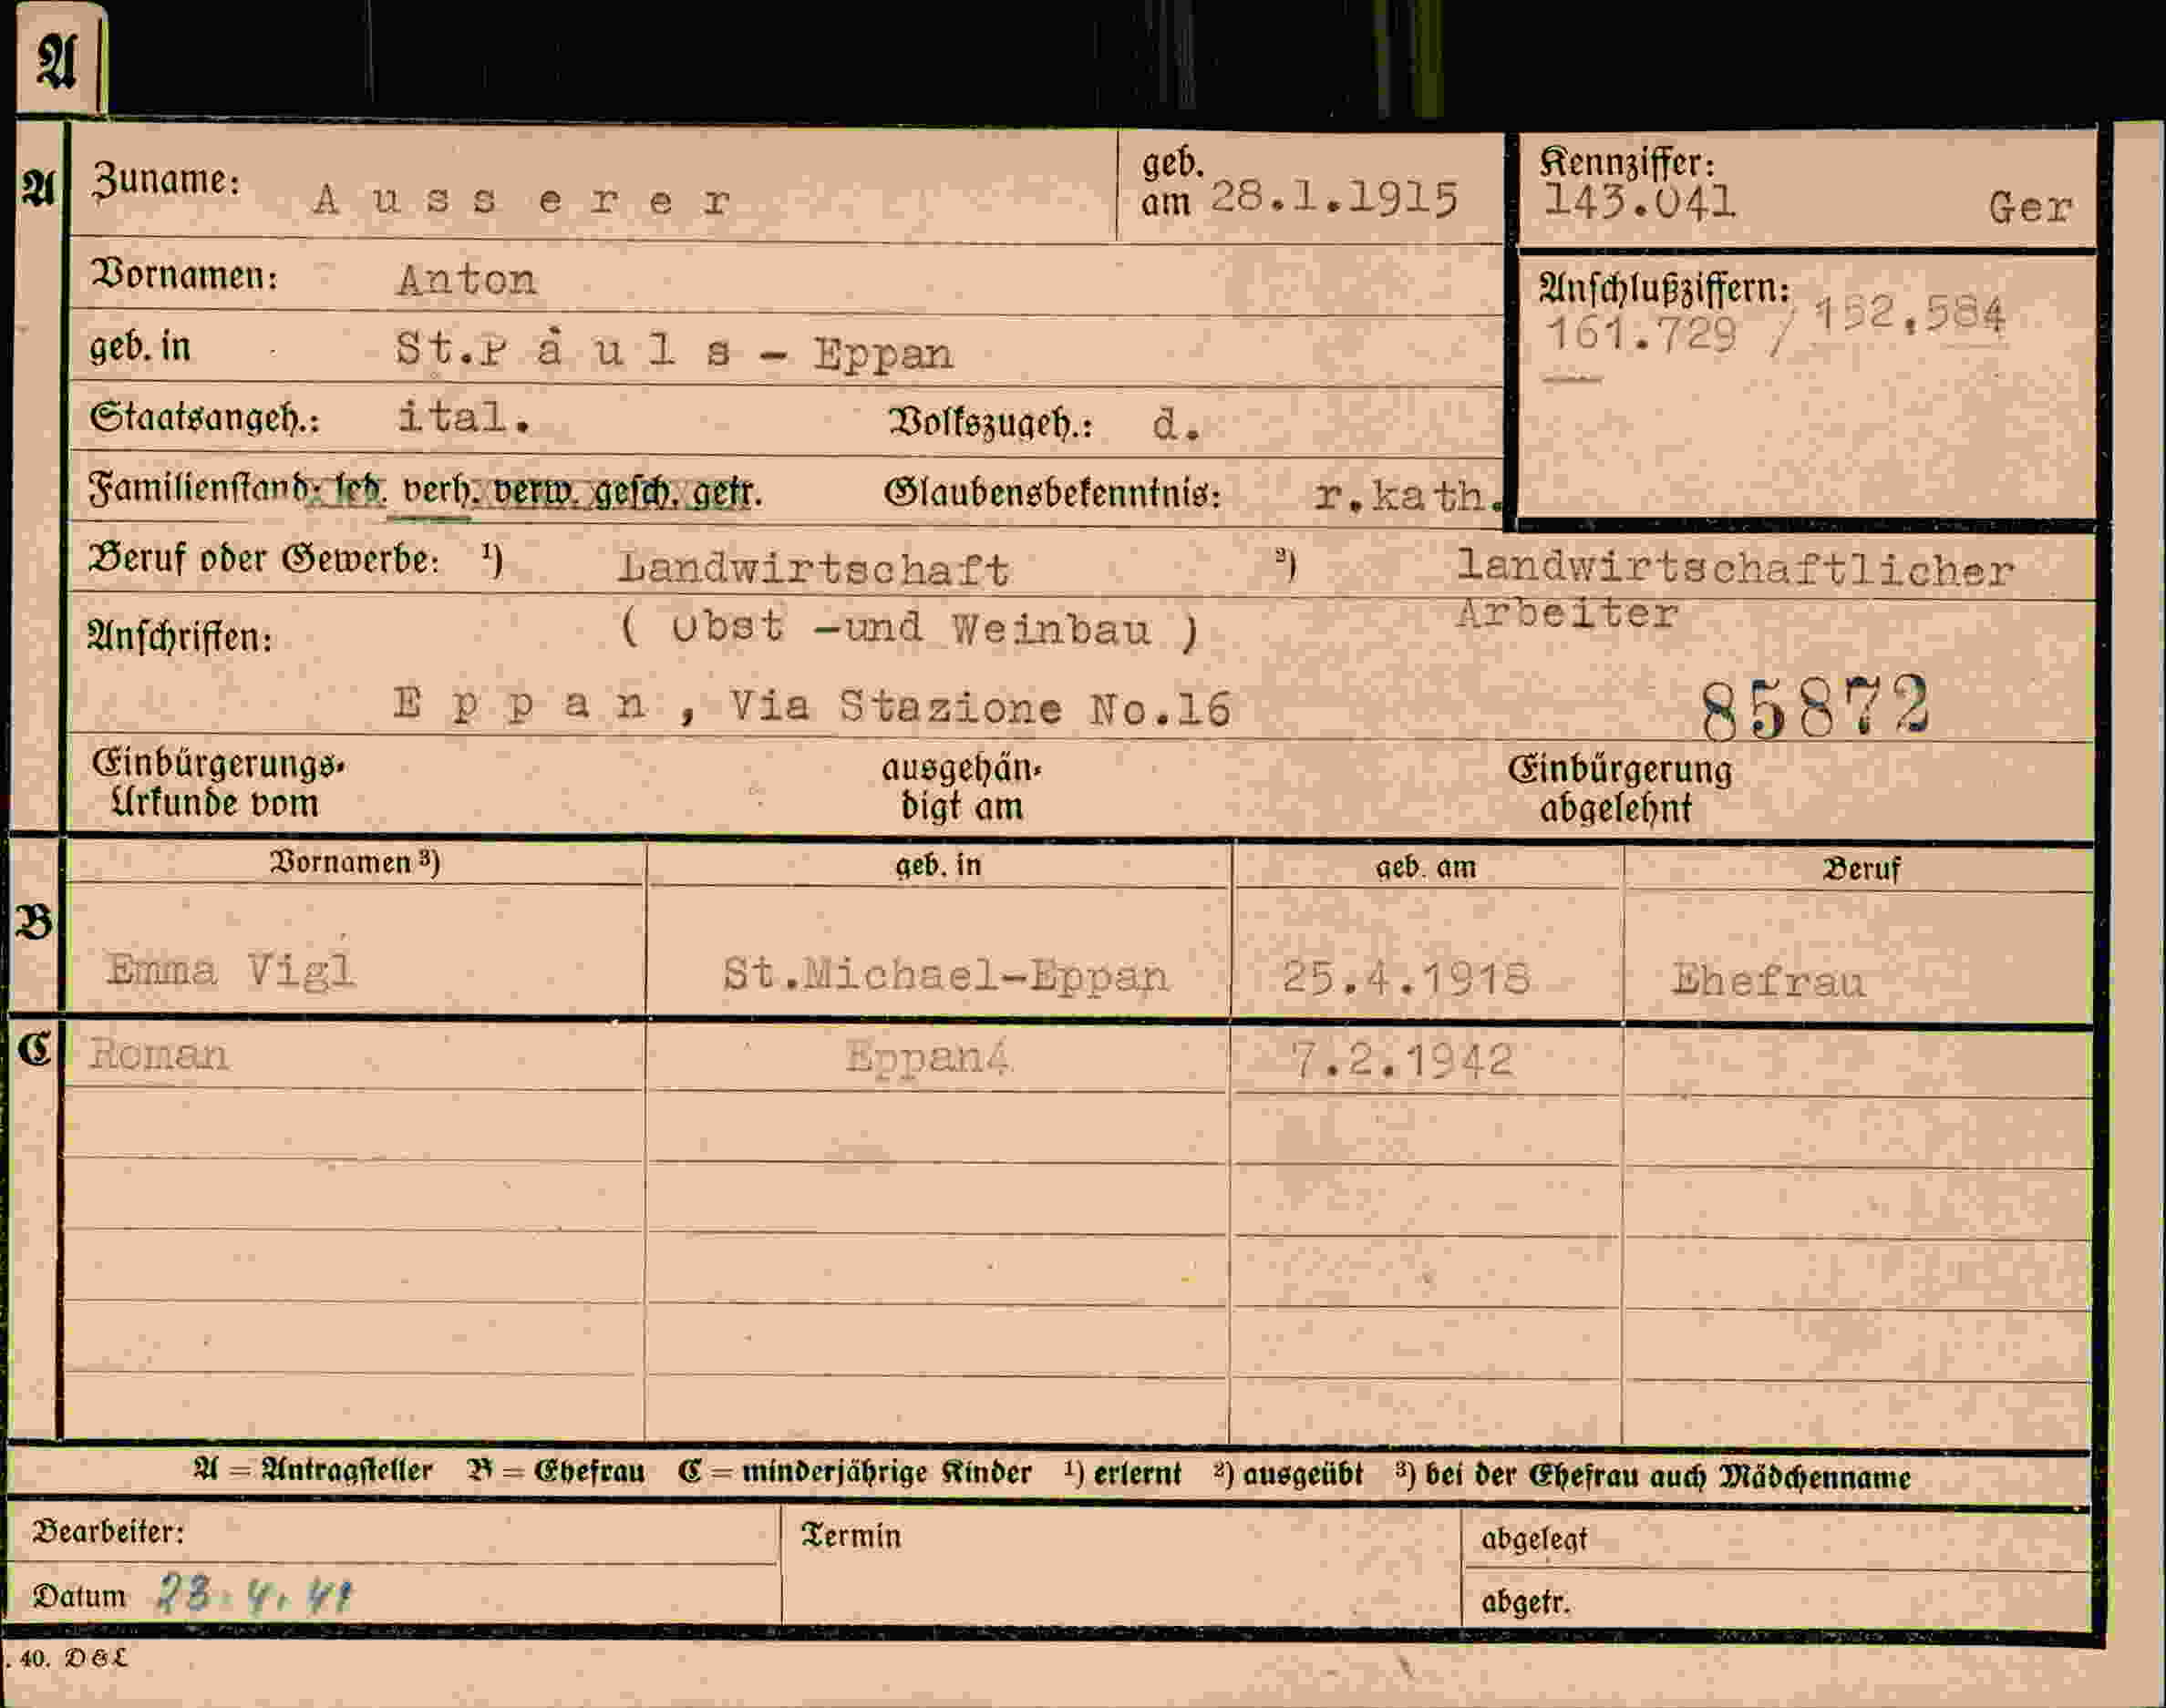 A
A Zuname: A u s s e r e r geb. am 28.1.1915
Kennziffer:
143.041 Ger
Vornamen: Anton
Anschlußziffern:
161.729 / 152.584
geb. in St.P a u l s - Eppan
Staatsangeh.: ital. Volkszugeh.: d.
Familienstand: led. verh. verw. gesch. getr. Glaubensbekenntnis: r.kath.
Beruf oder Gewerbe: ¹) Landwirtschaft ²) landwirtschaftlicher
( Obst -und Weinbau ) Arbeiter
Anschriften:
E p p a n , Via Stazione No.16 85872
Einbürgerungs- ausgehän- Einbürgerung
Urkunde vom digt am abgelehnt
Vornamen ³) geb. in geb. am Beruf
B
Emma Vigl St.Michael-Eppan 25.4.1918 Ehefrau
C Roman Eppan4 7.2.1942
A = Antragsteller B = Ehefrau C = minderjährige Kinder ¹) erlernt ²) ausgeübt ³) bei der Ehefrau auch Mädchenname
Bearbeiter: Termin abgelegt
Datum 23.4.41 abgetr.
. 40. D & L